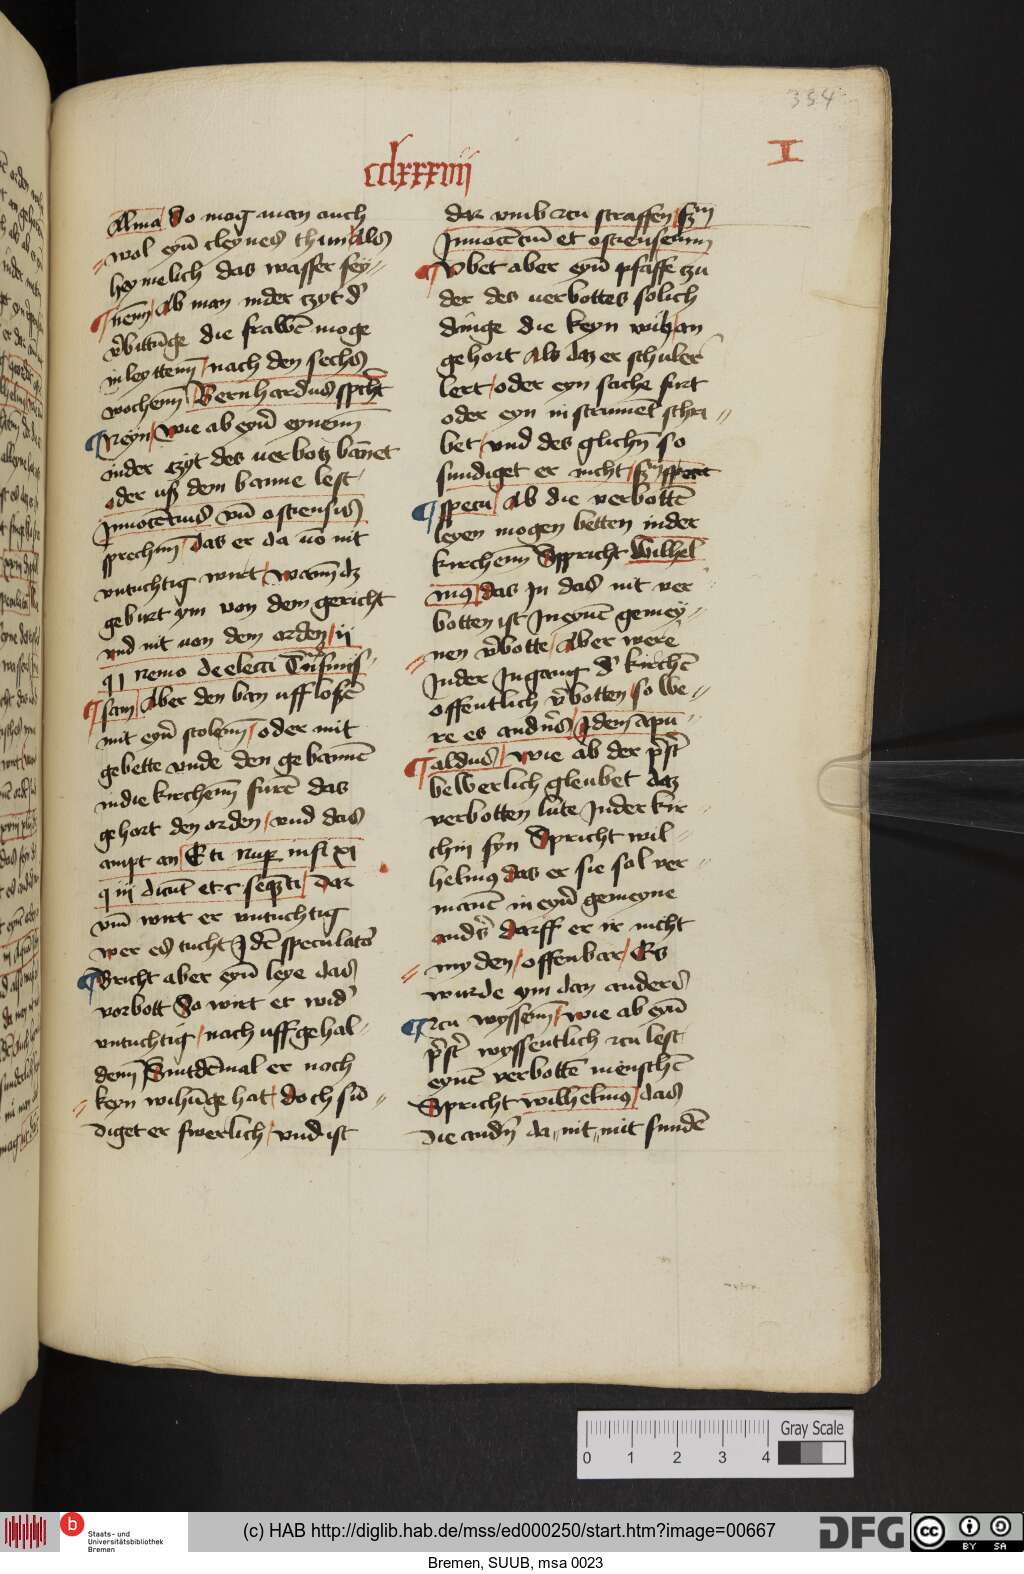 354
I
cclxxxviij
Alma / So mog man auch
wol eyn̄ cleynes thun Als
heymelich das wasser sey⸗
nem̄ / Ab man inder czyt d'
v'bittūge die frawē moge
in leyttenn̄ / nach den sechs
wochenn̄ Bernhardus spᵉcht
Neyn / Wie ab eyn̄ eynenn̄
inder czyt des verbotz bānet
oder uß dem banne lest
Innocētius vn̄ ostiensis
sprechnn̄ / das er da vō nit
vntuchtig wirt / Wann dz
geburt ym von dem gericht
vnd nit von dem orden / ij
q j nemo de elecci Trāsmis⸗
sam / Aber den ban uff loßē
mit eyn̄ stolenn̄ / oder mit
gebette vnde den gebannē
in die kirchenn̄ furē das
gehort den orden / vnd das
ampt an / E ti nup in fi xi
q iij dicūt et c seq̄nti / Dar
vm̄ wirt er vntuchtig
wer es tucht Idē speculator
Bricht aber eyn̄ leye das
vorbott So wirt er wid'
vntuchtig / nach uffgehal⸗
denn̄ Sintdēmal er noch
keyn wihūge hat / doch sū⸗
diget er swerlich / vnd ist
dar vmb zcu straffen / s₃m
Innocētiū et ostiensemm
Vbet aber eyn̄ pfaffe czu
der des verbottes solich
dinge die keyn wih an
gehort Als daz er schuler
lert / oder eyn sache furt
oder eyn instrumēt schri⸗
bet / vnd des glichn̄ so
sundiget er nicht / s₃m spect
specu / Ab die verbottē
leyen mogen betten inder
kirchenn̄ Spricht Wilhel
mus / das In das nit ver
botten ist In eynē gemey⸗
nen v'botte / Aber were
Inder Ingang d' kirchē
offentlich v'botten so we⸗
re es anders / Idem apu⸗
aldus / Wie ab der p'ster
bewerlich gleubet daz
verbotten lute Inder kir⸗
chin syn Spricht wil⸗
helmus das er sie sol ver⸗
manē in eyn̄ gemeyne
anders darff er ir nicht
myden / offenbar / Es
wurde ym dan anders
zcu wyssenn̄ / wie ab eyn̄
p'ster wyssentlich zcu lest
eynē verbottē menschē
Spricht wilhelmus / das
die andn̄ da⸗nit⸗mit sundē
Gray Scale
0 1 2 3 4
Staats- und
Universitätsbibliothek
Bremen
(c) HAB http://diglib.hab.de/mss/ed000250/start.htm?image=00667
DFG
cc BY SA
Bremen, SUUB, msa 0023